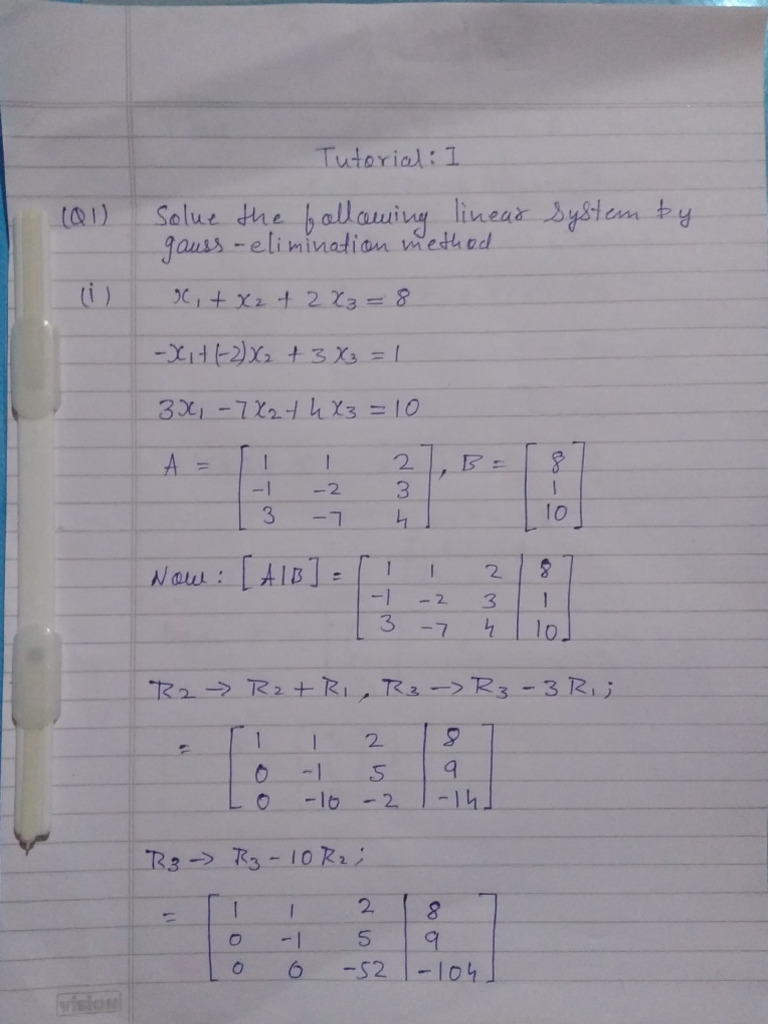 Tutorial: I
(Q1) Solve the following linear system by
gauss-elimination method
(i) x₁ + x₂ + 2x₃ = 8
-x₁+(-2)x₂ + 3x₃ = 1
3x₁ - 7x₂ + 4x₃ = 10
A = [ 1 1 2 ], B = [ 8 ]
-1 -2 3 1
3 -7 4 10
Now: [A|B] = [ 1 1 2 | 8 ]
-1 -2 3 | 1
3 -7 4 | 10
R2 → R2 + R1, R3 → R3 - 3R1;
= [ 1 1 2 | 8 ]
0 -1 5 | 9
0 -10 -2 | -14
R3 → R3 - 10R2;
= [ 1 1 2 | 8 ]
0 -1 5 | 9
0 0 -52 | -104
vision